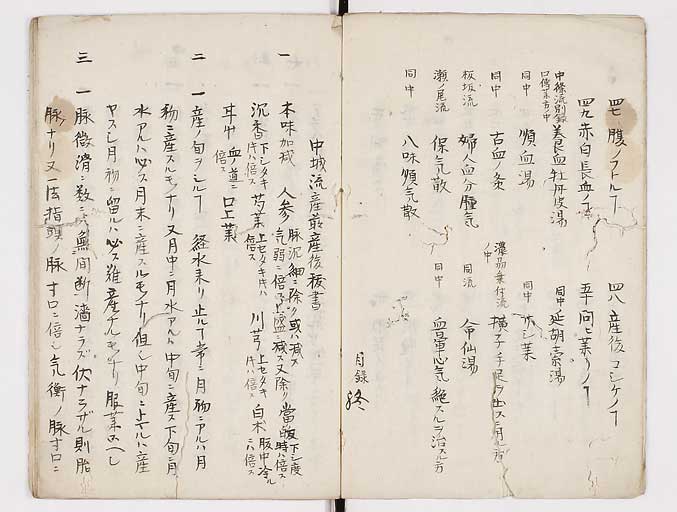 四七 腹ノフトルヿ 四八 産後コシケノヿ
四九 赤白長血ノ事 五十 問ニ薬ノヿ
中條流別録
口傳ノ方中 美良血牡丹皮湯 同中 延胡索湯
同中 順血湯 同中 ホシ薬
同中 古血ノ灸 横子手足ヲ出スニ用ル方
板坂流 婦人血分腫気 同流 命仙湯
瀬ノ尾流 保気散 同中 血暈心気絶スルヲ治スル方
同中 八味順気散
目録終
中城流産前産後秘書
一 本味加減 人参 脉沉細ニ除ク或ハ減ス
気弱ニ倍
沉香 下シタキ
時ハ倍ス 芍薬 上セタキ時ハ
倍ス 川芎 上セタキ
時ハ倍ス 白朮 腹中冷ル
ニハ倍ス
血ノ道ニ
倍ス 已上薬
二 一 産ノ旬ヲシルヿ 経水来リ止ルヿ常ニ月初ニアルハ月
初ニ産スルモノナリ又月中ニ月水アルハ中旬ニ産ス下旬ニ月
水アルハ必ス月末ニ産スルモノナリ但シ中旬ニ上ヤルハ産
ヤスシ月初ニ留ルハ必ス難産スルモノナリ服薬スヘシ
三 一 脉微滑ニ数ニ〆無間断濇ナラズ伏ナラザル則胎
脉ナリ又一法指頭ノ脉寸口ニ倍シ気衝ノ脉寸口ニ